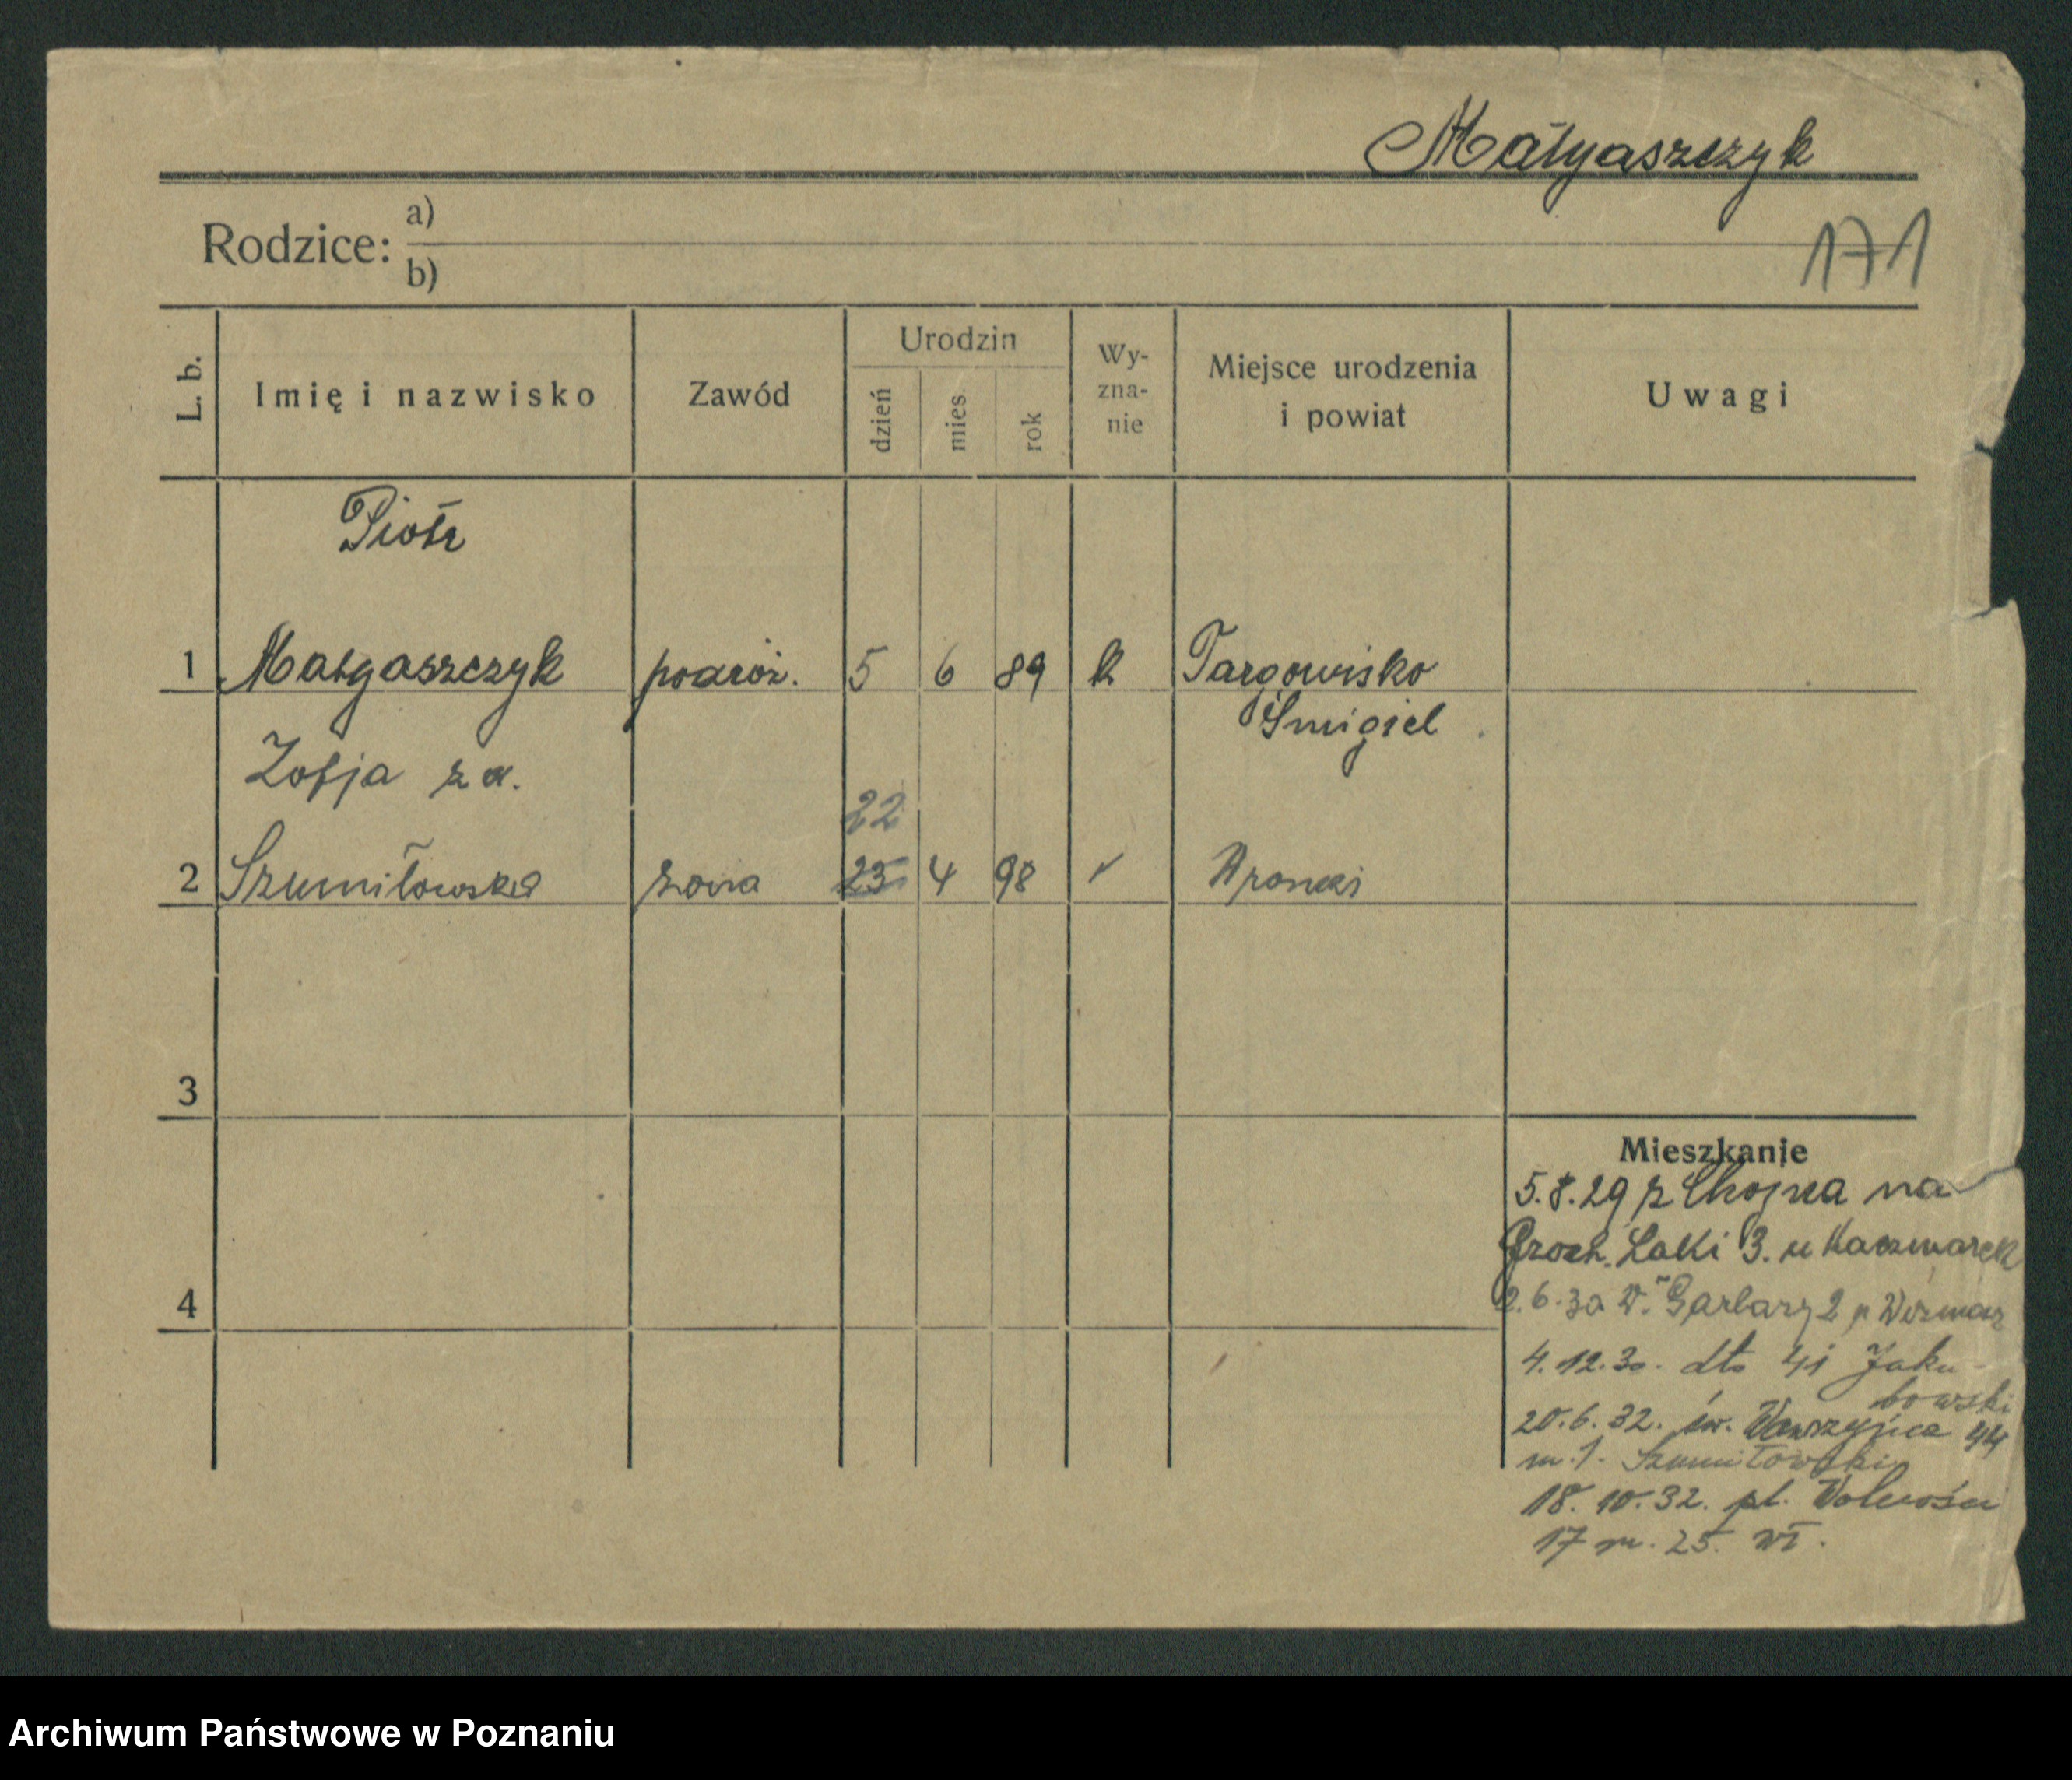 Małgaszczyk
171
Rodzice: a)
b)
L. b. Imię i nazwisko Zawód Urodzin dzień mies. rok Wy-zna-nie Miejsce urodzenia i powiat Uwagi
Piotr
1 Małgaszczyk podróż. 5 6 89 k Targowisko
Śmigiel
Zofja z d.
22
2 Szumiłowska żona 23 4 98 Wronki
3
4
Mieszkanie
5.8.29 z Chojna na
Groch. Łaki 3. u Kaczmarek
2.6.30 W. Garbary 2 p
4.12.30. dto 41 Jaku-
bowski
20.6.32. św. Wawrzyńca 44
m. 1. Szumiłowski
18.10.32. pl. Wolności
17 m. 25. wł.
Archiwum Państwowe w Poznaniu